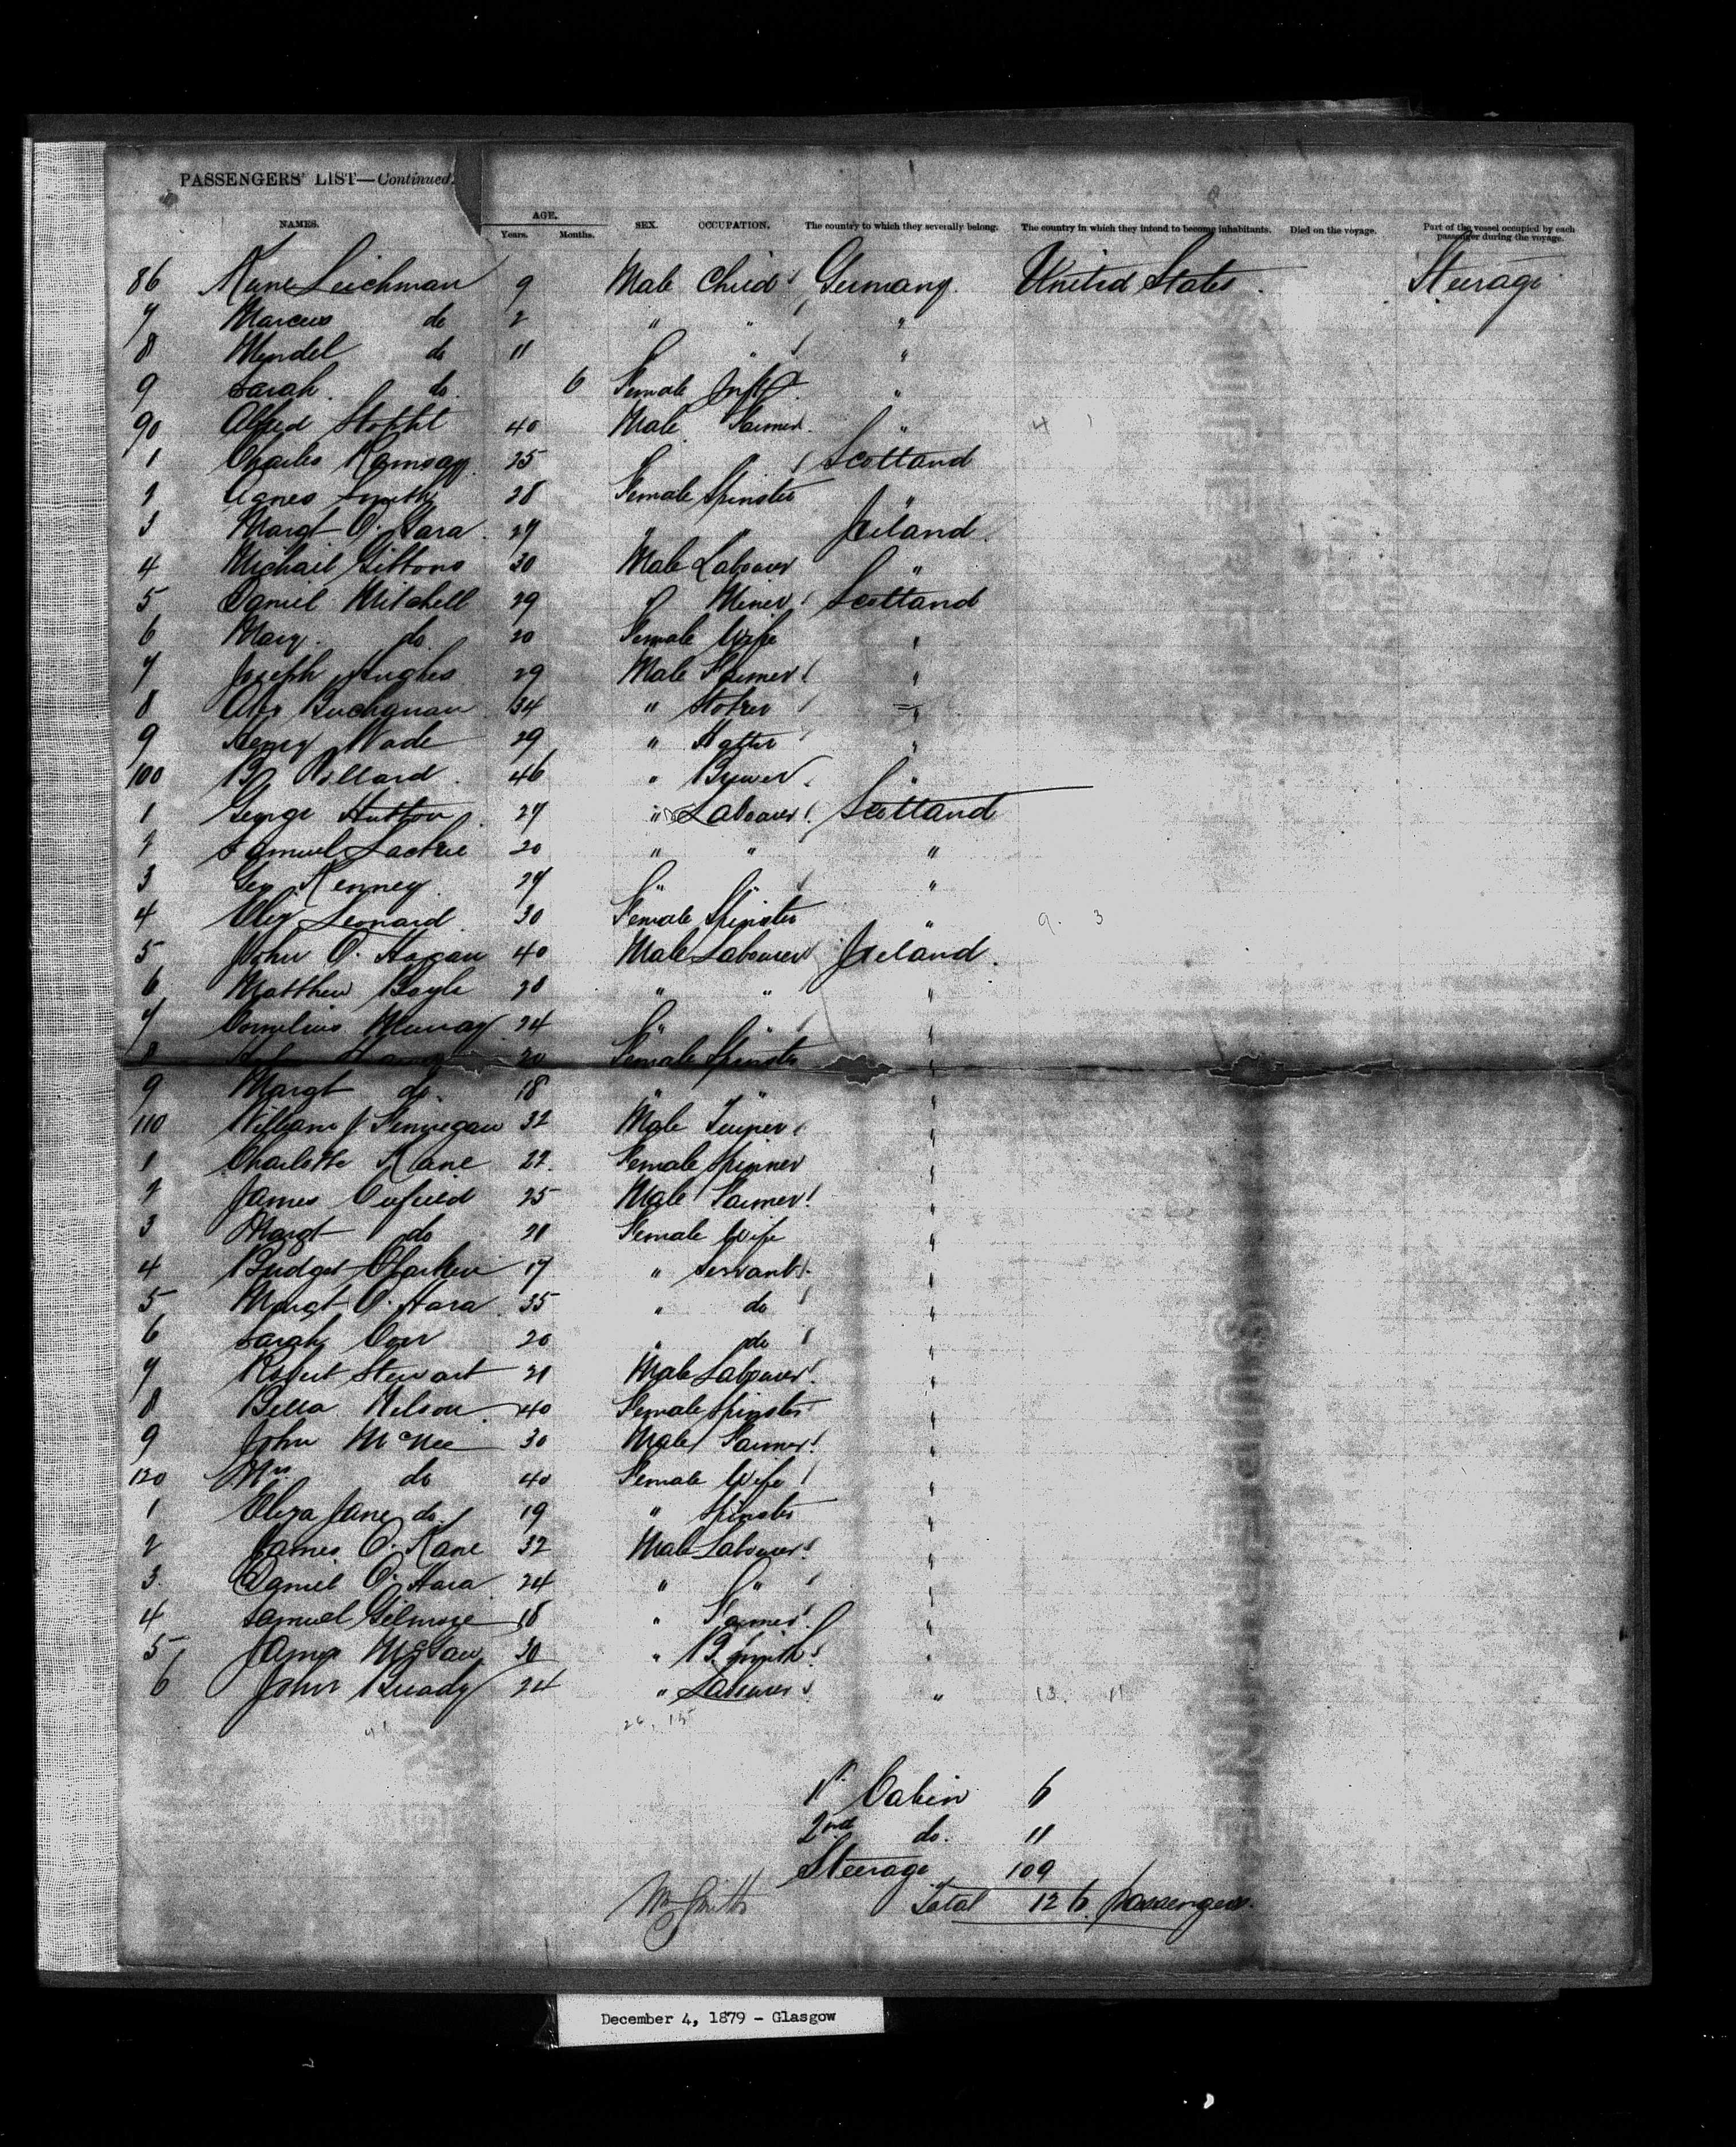 PASSENGERS' LIST—Continued.
NAMES. AGE. Years. Months. SEX. OCCUPATION. The country to which they severally belong. The country in which they intend to become inhabitants. Died on the voyage. Part of the vessel occupied by each passenger during the voyage.
86 Leichman 9 Male Child Germany. United States. Steerage
7 Marcus do 2 " " "
8 Mendel do 11 " "
9 Sarah. do. 6 Female Inft "
90 Alfred 40 Male Farmer. "
1 Charles Ramsay 25 " Scotland
2 Agnes Smith 28 Female Spinster "
3 Margt O'Hara 27 " " Ireland.
4 Michail Gibbons 30 Male Labourer "
5 Daniel Mitchell 29 " Miner Scotland
6 Mary. do. 20 Female Wife "
7 Joseph Hughes 29 Male Farmer "
8 Alex Buchanan 34 " "
9 Henry Wade 29 " Hatter "
100 Pollard. 46 " Brewer. "
1 George Hutton 27 " Labourer Scotland
2 Samuel Lackie 20 " " "
3 Geo Kenney. 27 " " "
4 Leonard 30 Female Spinster " 9. 3
5 John O'Hagan 40 Male Labourer Ireland.
6 Matthew Boyle 28 " " "
7 Cornelius Murray 24 " " "
8 20 Female Spinster "
9 Margt do. 18 " " "
110 William J Finnegan 32 Male "
1 Charlotte Kane 22. Female Spinner "
2 James 25 Male Farmer "
3 Margt do 21 Female Wife "
4 Bridget 17 " Servant "
5 Margt O'Hara 35 " do "
6 Sarah 20 " do "
7 Robert Stewart 21 Male Labourer "
8 Bella Nelson. 40 Female Spinster "
9 John McNee 30 Male Farmer "
120 Mrs do 40 Female Wife "
1 Eliza Jane do. 19 " Spinster "
2 James O'Kane 32 Male Labourer "
3. Daniel O'Hara 24 " " "
4 Samuel Gilmore 18 " Farmer "
5 James 30 " B. Smith "
6 John Brady 24 " Labourer " 13. 11
26, 15
1st Cabin 6
2nd do. 11
Steerage 109
Wm Smith Total 126 passengers.
December 4, 1879 - Glasgow